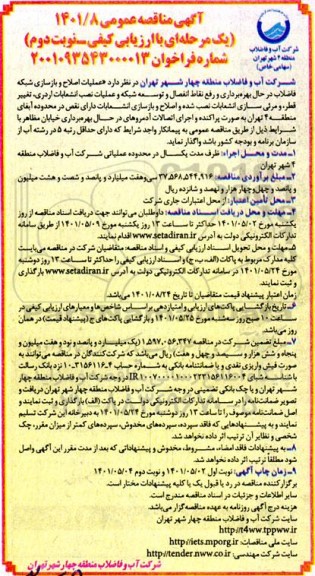 آگهی مناقصه عمومی ۱۴۰۱/۸
(یک مرحله‌ای با ارزیابی کیفی ـ نوبت دوم)
شماره فراخوان ۲۰۰۱۰۹۳۵۴۳۰۰۰۰۱۳
شرکت آب و فاضلاب
منطقه ۴ شهر تهران
(سهامی خاص)
شرکت آب و فاضلاب منطقه چهار شهر تهران در نظر دارد «عملیات اصلاح و بازسازی شبکه
فاضلاب در حال بهره‌برداری و رفع نقاط انفصال و توسعه شبکه و عملیات نصب انشعابات اردری، تغییر
قطر، و مرئی سازی انشعابات نصب شده و اصلاح و بازسازی انشعابات دارای نقص در محدوده آبفای
منطقه ۴ تهران به صورت پراکنده و اجرای اتصالات آدم‌روهای در حال بهره‌برداری خیابان مظاهر با
شرایط ذیل از طریق مناقصه عمومی به پیمانکار واجد شرایط که دارای حداقل رتبه ۵ در رشته آب از
سازمان برنامه و بودجه کشور باشد واگذار نماید.
۱ـ مدت و محل اجراء: ظرف مدت یکسال در محدوده عملیاتی شرکت آب و فاضلاب منطقه
۴ شهر تهران
۲ـ مبلغ برآوردی مناقصه: ۳۷,۵۶۸,۵۴۴,۹۱۶ سی‌و‌هفت میلیارد و پانصد و شصت و هشت میلیون
و پانصد و چهل‌و‌چهار هزار و نهصد و شانزده ریال
۳ـ محل تأمین اعتبار: از محل اعتبارات جاری شرکت
۴ـ مهلت و محل دریافت اسناد مناقصه: داوطلبان می‌توانند جهت دریافت اسناد مناقصه از روز
یکشنبه مورخ ۱۴۰۱/۵/۰۲ حداکثر تا ساعت ۱۳ روز یکشنبه مورخ ۱۴۰۱/۰۵/۰۹ از طریق سامانه
تدارکات الکترونیکی دولت به آدرس www.setadiran.ir اقدام نمایند.
۵ـ مهلت و محل تحویل اسناد ارزیابی کیفی و اسناد مناقصه: متقاضیان شرکت در مناقصه می‌بایست
کلیه مدارک مربوط به پاکات (الف، ب، ج) و اسناد ارزیابی کیفی را حداکثر تا ساعت ۱۳ روز دوشنبه
مورخ ۱۴۰۱/۰۵/۲۴ در سامانه تدارکات الکترونیکی دولت به آدرس www.setadiran.ir بارگذاری
و ثبت نمایند.
زمان اعتبار پیشنهاد قیمت متقاضیان تا تاریخ ۱۴۰۱/۰۸/۲۴ می‌باشد.
۶ـ تاریخ بازگشایی پاکت‌های ارزیابی و امتیازدهی بر اساس شاخص‌ها و معیارهای ارزیابی کیفی در
ساعت ۱۰ صبح روز سه‌شنبه مورخ ۱۴۰۱/۰۵/۲۵ و بازگشایی پاکت‌های ج (پیشنهاد قیمت) در همان
روز می‌باشد.
۷ـ مبلغ تضمین شرکت در مناقصه ۱,۵۸۷,۰۵۶,۳۴۷ (یک میلیارد و پانصد و نود و هفت میلیون و
پنجاه و شش هزار و سیصد و چهل و هفت) ریال می‌باشد که شرکت‌کنندگان در مناقصه می‌توانند به
صورت فیش واریزی نقدی و یا ضمانتنامه بانکی به شماره حساب
در وجه شرکت آب و فاضلاب منطقه چهار
شهر تهران و یا چک بانکی تضمینی در وجه شرکت آب و فاضلاب منطقه چهار شهر تهران دریافت و
تصویر ضمانتنامه را در سامانه تدارکات الکترونیکی دولت در پاکت (الف) بارگذاری و ثبت نمایند و
اصل ضمانت‌نامه موصوف را تا ساعت ۱۳ روز دوشنبه مورخ ۱۴۰۱/۰۵/۲۴ به دبیرخانه این شرکت تسلیم
نمایند و به پیشنهادهایی که فاقد سپرده، سپرده‌های مخدوش، سپرده‌های کمتر از میزان مقرر، چک
شخصی و نظایر آن ترتیب اثر داده نخواهد شد.
۸ـ به پیشنهادات فاقد امضاء، مشروط، مخدوش و پیشنهاداتی که بعد از مدت مقرر این آگهی واصل
شود مطلقاً ترتیب اثر داده نخواهد شد.
۹ـ زمان چاپ آگهی: نوبت اول ۱۴۰۱/۰۵/۰۲ و نوبت دوم ۱۴۰۱/۰۵/۰۳
برگزارکننده مناقصه در رد یا قبول یک یا کلیه پیشنهادات مختار است.
سایر اطلاعات و جزئیات در اسناد مناقصه مندرج است.
هزینه درج آگهی روزنامه به عهده مناقصه‌گزار می‌باشد.
سایت شرکت آب و فاضلاب منطقه چهار شهر تهران
http://t4ww.tppww.ir
سایت ملی مناقصات: http://iets.mporg.ir
سایت شرکت مهندسی: http://tender.nww.co.ir
شرکت آب و فاضلاب منطقه چهار شهر تهران